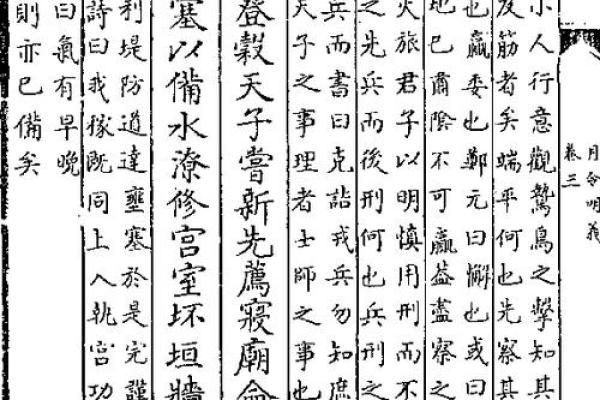 月令明義
卷三
小人行意觀鷙鳥之擊知其
及筋者矣端平何也先察其
也贏委也鄭元曰懈也或曰
地已肅陰不可贏益盡察之
火旅君子以明慎用刑而不
之先兵而後刑何也兵刑之
兵而書曰克詰戎兵勿知庶
天子之事理者士師之事也
登穀天子嘗新先薦寢廟命
塞以備水潦修宮室坏垣牆
利堤防道達壅塞於是完謹
詩曰我稼既同上入執宮功
曰氣有早晚
則亦已備矣